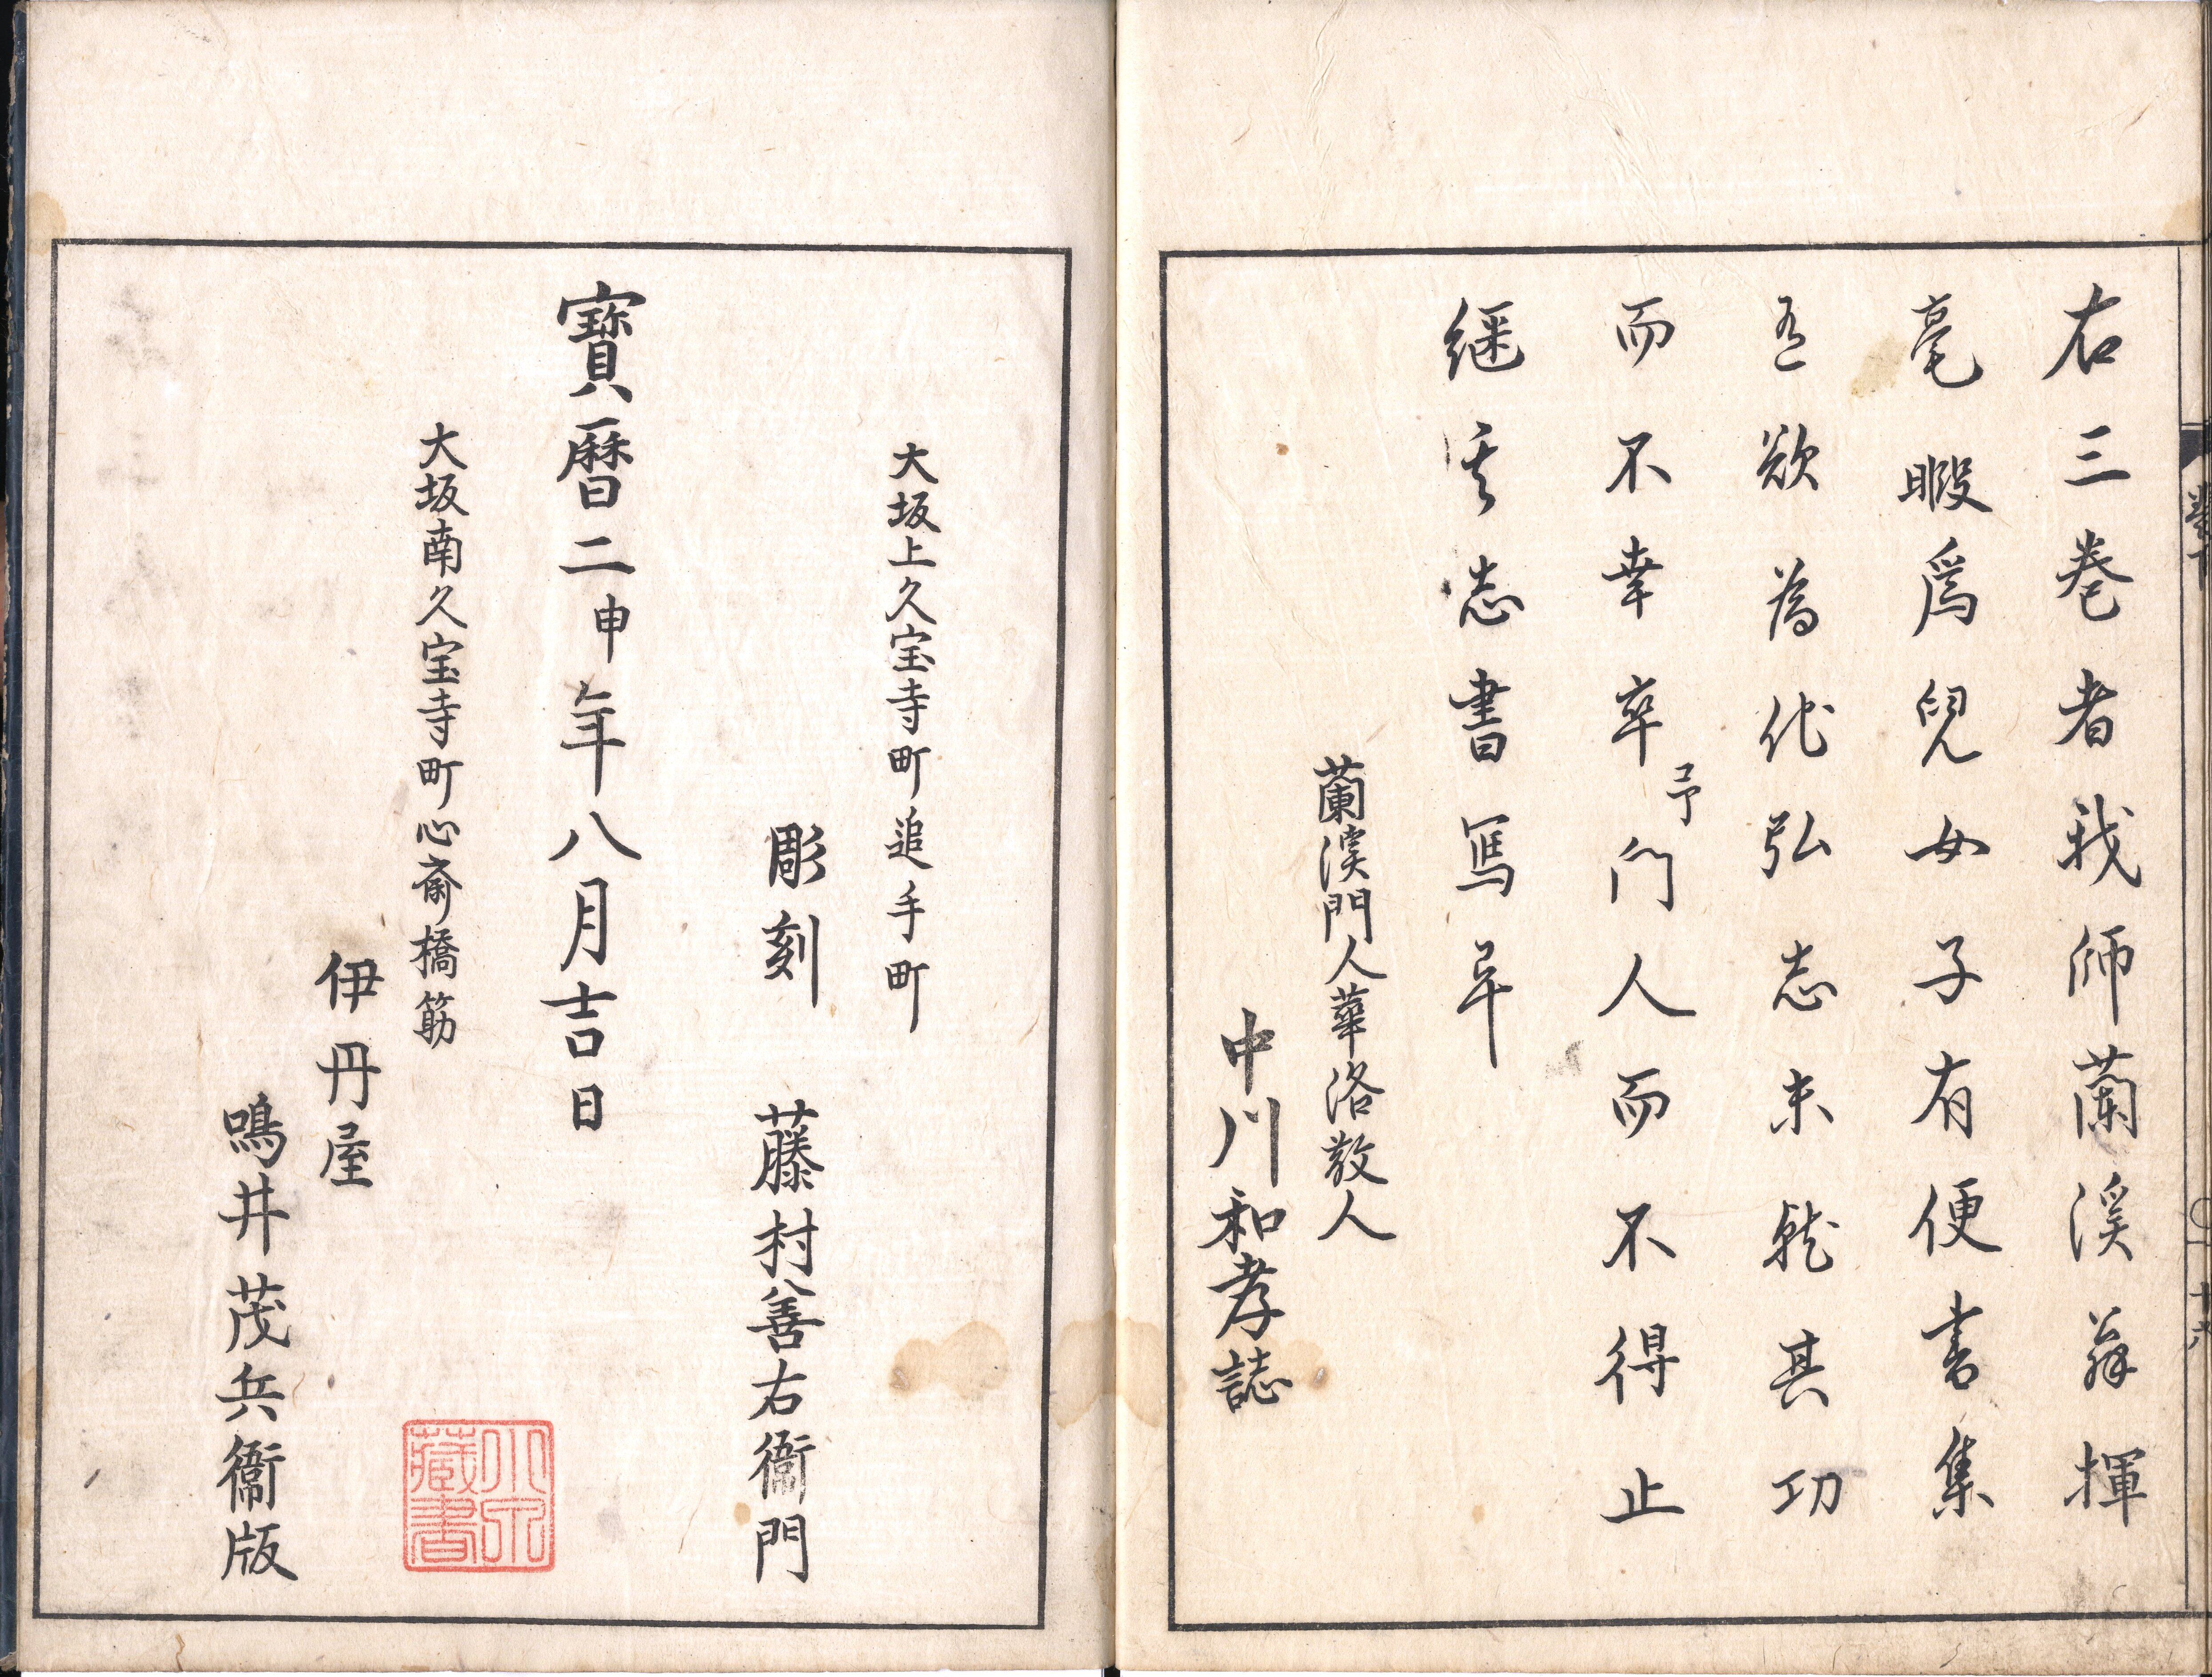 右三巻者我師蘭溪翁揮
毫暇爲兒女子有便書集
焉欲為代弘志未就其功
而不幸卒予門人而不得止
継其志書寫早
蘭溪門人華洛散人
中川和孝誌
大坂上久宝寺町追手町
彫刻 藤村善右衞門
寳暦二申年八月吉日
大坂南久宝寺町心斎橋筋
伊丹屋
鳴井茂兵衞版
藏書